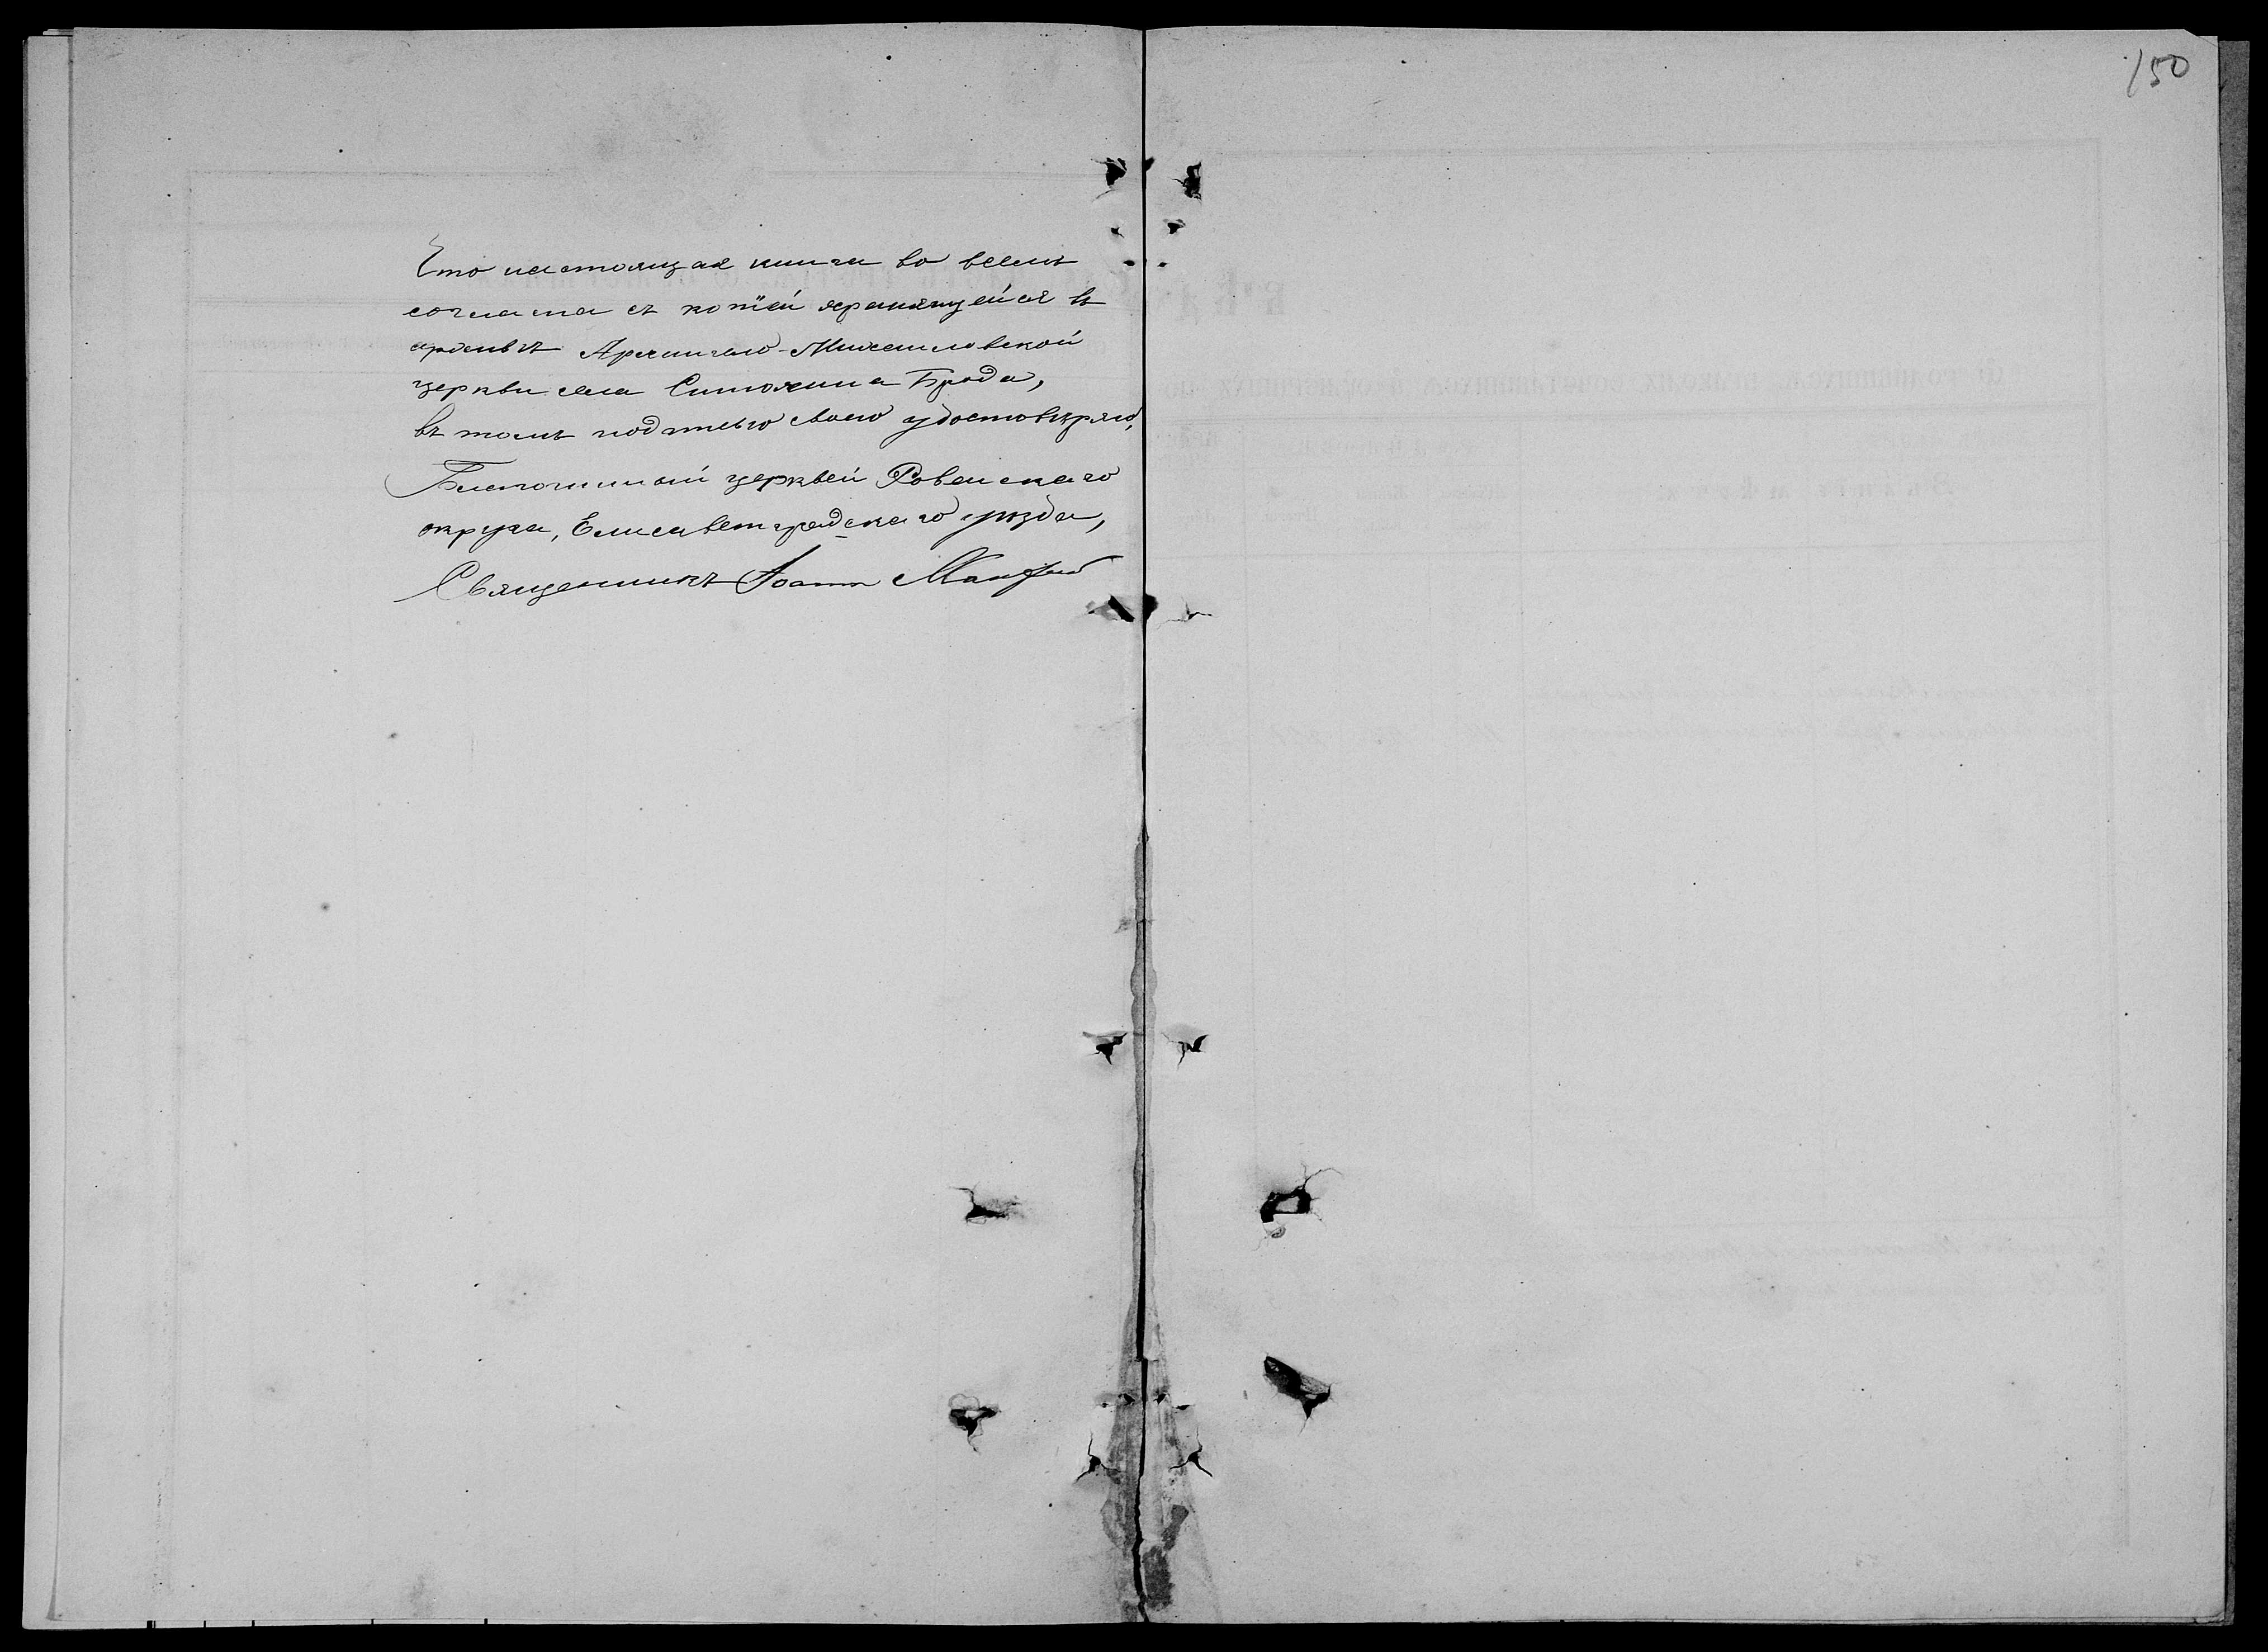 150
Что настоящая книга во всемъ
согласна съ копіей хранящейся въ
архивѣ Архангело-Михайловской
церкви села Ситохина Брода,
въ томъ подписью своею удостовѣряю,
Благочинный церквей Ровенскаго
округа, Елисаветградскаго уѣзда,
Священникъ Іоаннъ